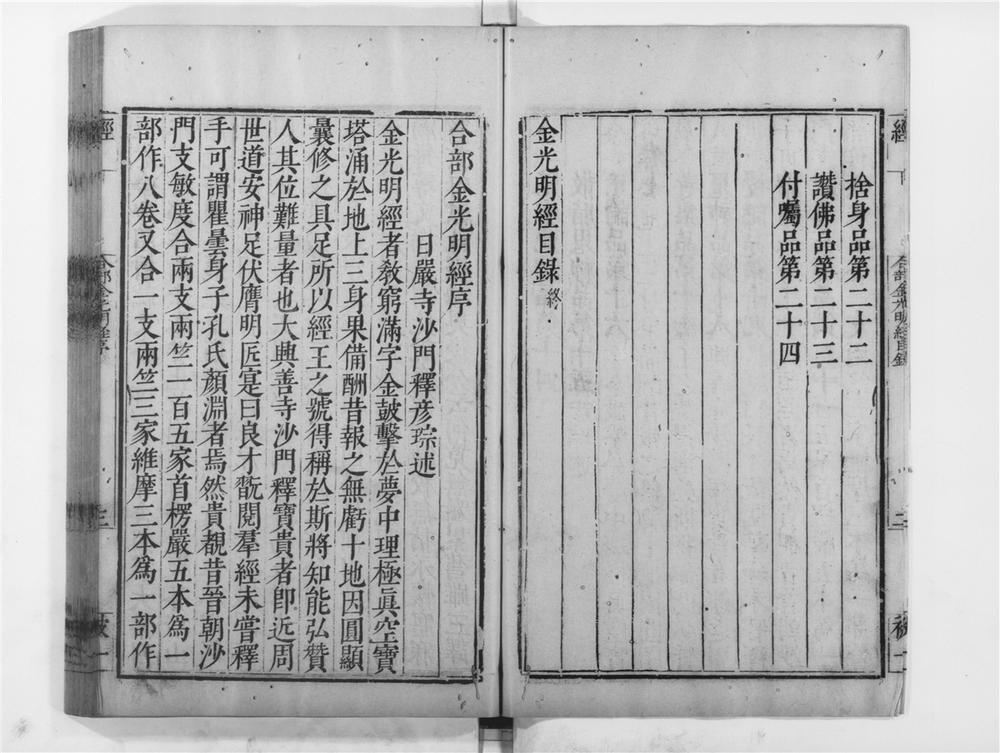 捨身品第二十二
讚佛品第二十三
付囑品第二十四
金光明經目錄終
合部金光明經序
日嚴寺沙門釋彥琮述
金光明經者教窮滿字金鼓擊於夢中理極眞空寶
塔涌於地上三身果備酬昔報之無虧十地因圓顯
曩修之具足所以經王之號得稱於斯將知能弘贊
人其位難量者也大興善寺沙門釋寶貴者即近周
世道安神足伏膺明匠寔曰良才翫閱羣經未嘗釋
手可謂瞿曇身子孔氏顏淵者焉然貴覩昔晉朝沙
門支敏度合兩支兩竺一百五家首楞嚴五本爲一
部作八卷又合一支兩竺三家維摩三本爲一部作